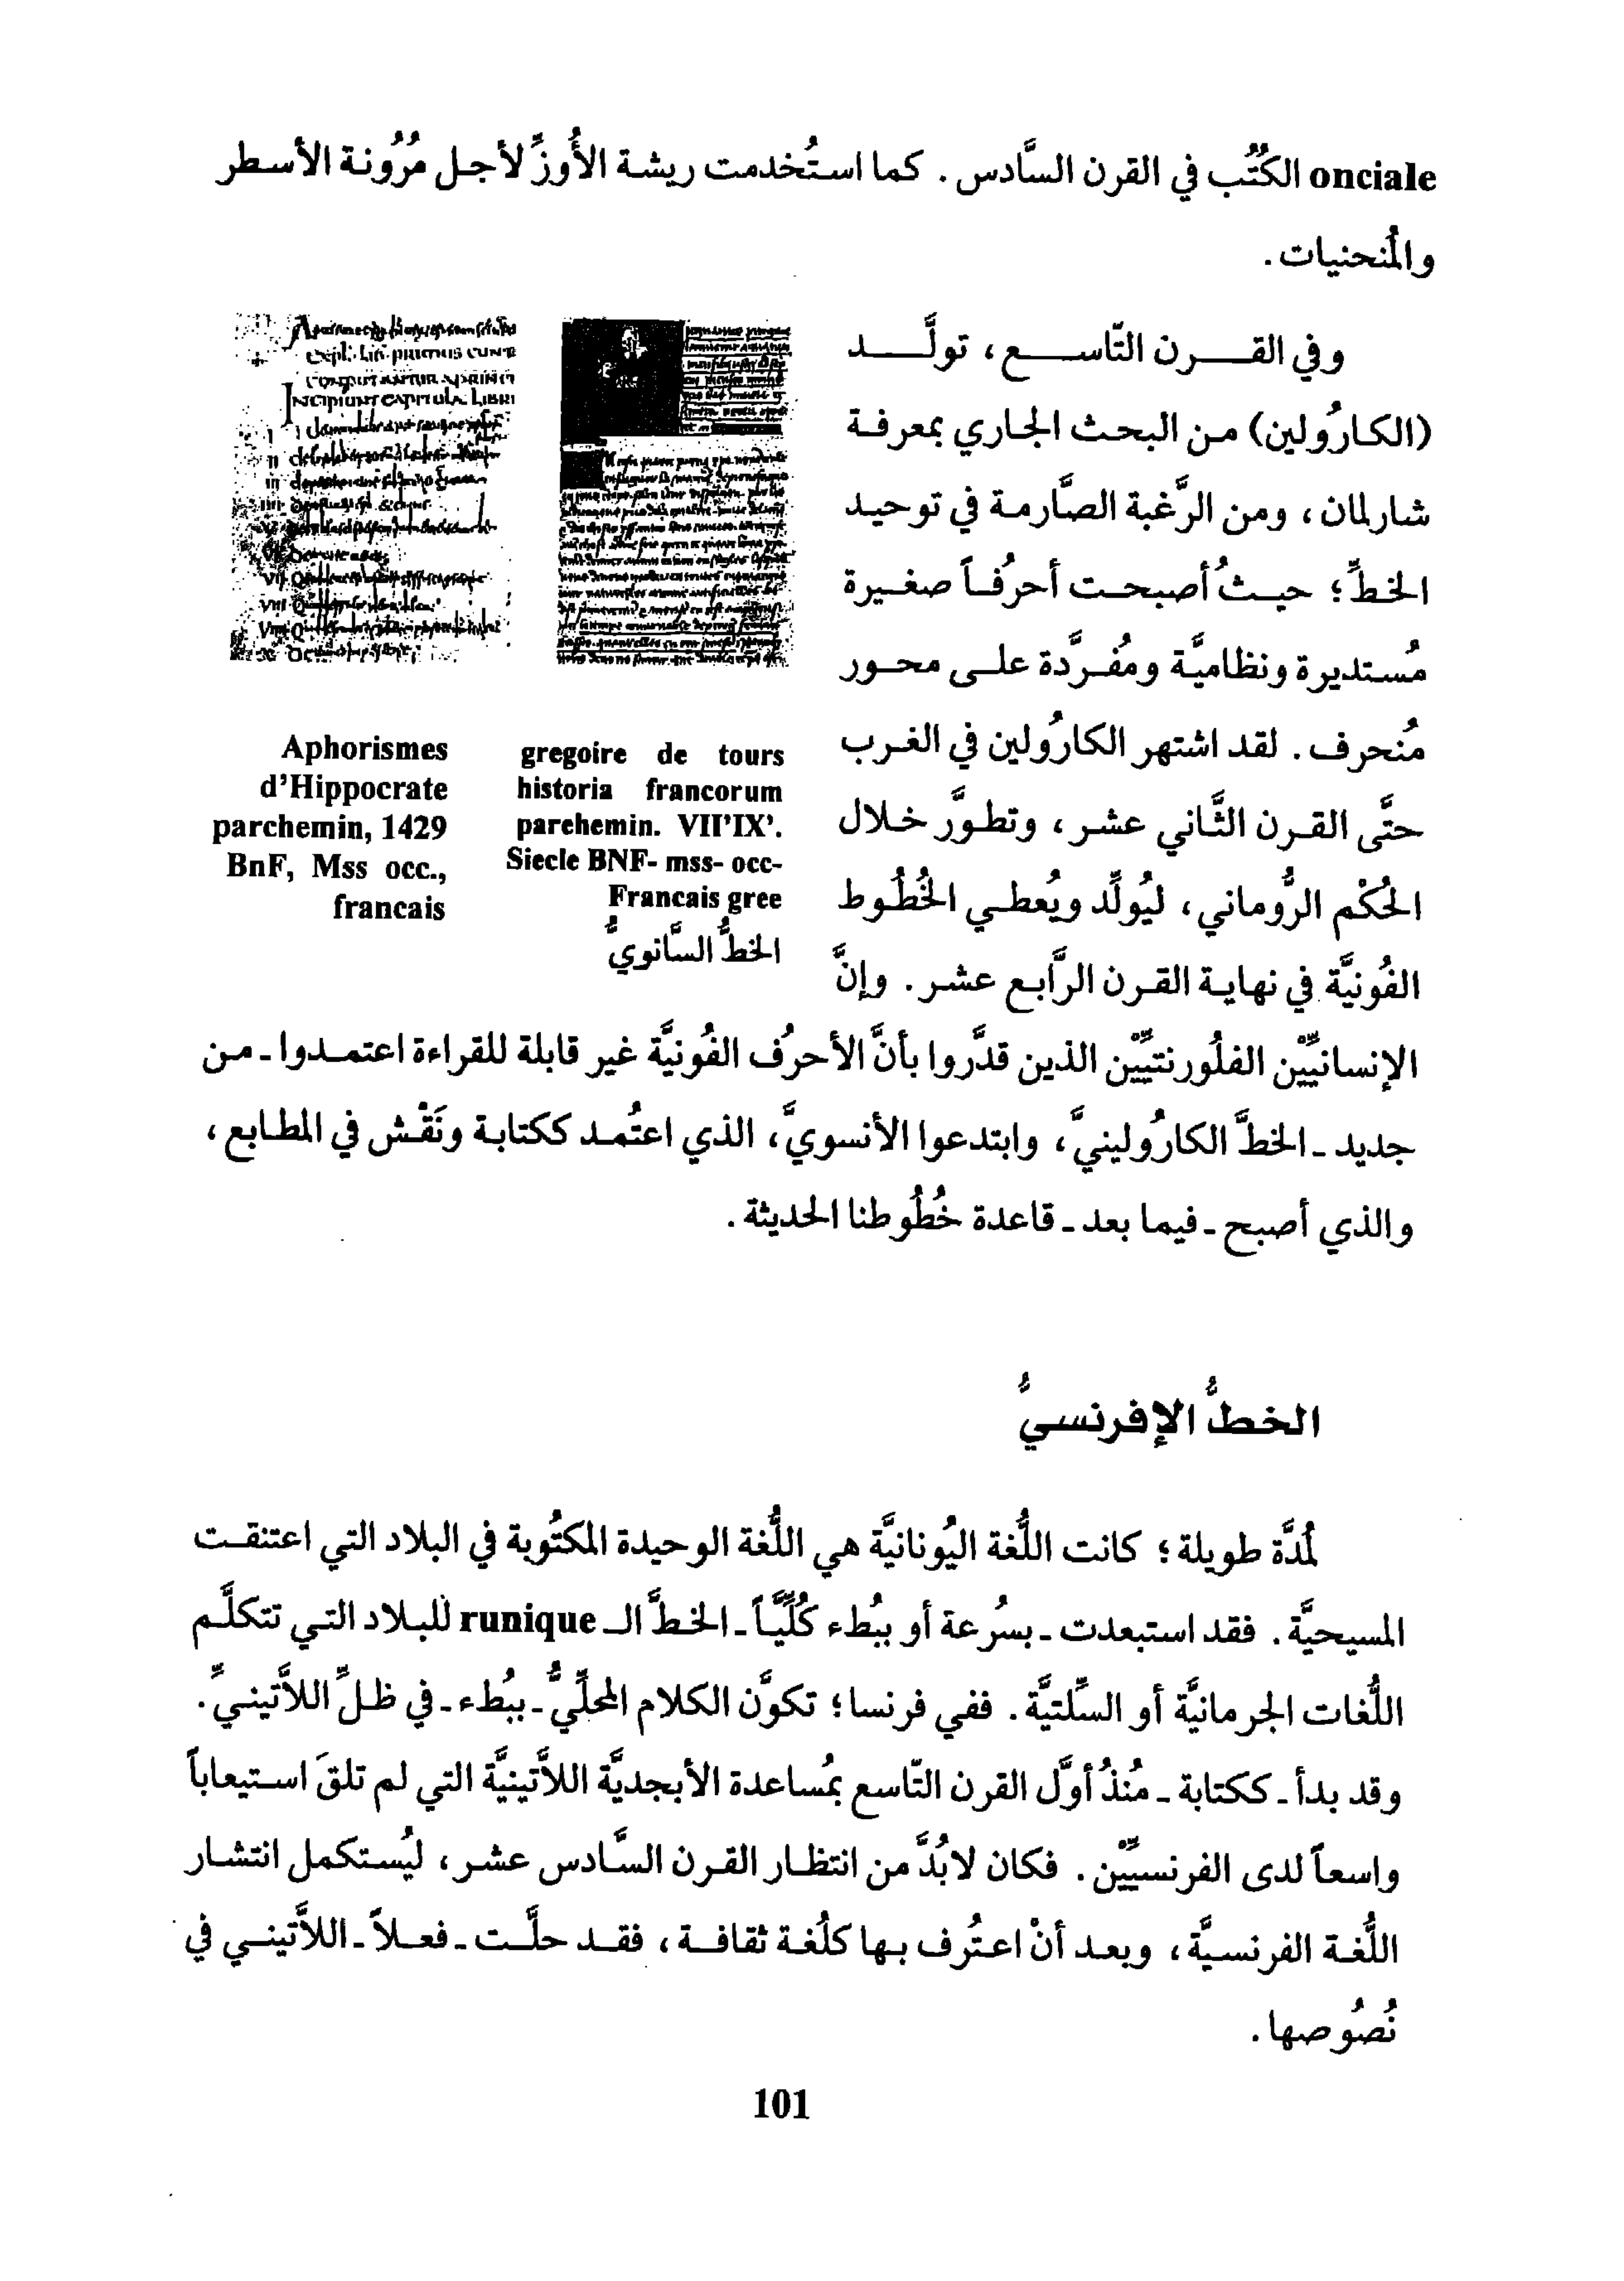 onciale الكُتُب في القرن السَّادس. كما استُخدمت ريشة الأُوزِّ لأجل مُرُونة الأسطر
والمُنحنيات.
وفي القرن التّاسع، تولَّد
(الكارُولين) من البحث الجاري بمعرفة
شارلمان، ومن الرَّغبة الصَّارمة في توحيد
الخطِّ؛ حيثُ أصبحت أحرُفاً صغيرة
مُستديرة ونظاميَّة ومُفرَّدة على محور
مُنحرف. لقد اشتهر الكارُولين في الغرب
حتَّى القرن الثَّاني عشر، وتطوَّر خلال
الحُكْم الرُّوماني، ليُولِّد ويُعطي الخُطُوط
الفُونيَّة في نهاية القرن الرَّابع عشر. وإنَّ
الإنسانيِّيْن الفلُورنتيِّيْن الذين قدَّروا بأنَّ الأحرُف الفُونيَّة غير قابلة للقراءة اعتمدوا ـ من
جديد ـ الخطَّ الكارُولينيَّ، وابتدعوا الأنسويَّ، الذي اعتُمد ككتابة ونَقْش في المطابع،
والذي أصبح ـ فيما بعد ـ قاعدة خُطُوطنا الحديثة.
gregoire de tours
historia francorum
parehemin. VII'IX'.
Siecle BNF- mss- occ-
Francais gree
الخطُّ السَّانويُّ
Aphorismes
d'Hippocrate
parchemin, 1429
BnF, Mss occ.,
francais
الخطُّ الإفرنسيُّ
لمُدَّة طويلة؛ كانت اللُّغة اليُونانيَّة هي اللُّغة الوحيدة المكتُوبة في البلاد التي اعتنقت
المسيحيَّة. فقد استبعدت ـ بسُرعة أو ببُطء كُلِّيَّاً ـ الخطَّ الـ runique للبلاد التي تتكلَّم
اللُّغات الجرمانيَّة أو السِّلتيَّة. ففي فرنسا؛ تكوَّن الكلام المحلِّيُّ ـ ببُطء ـ في ظلِّ اللاَّتينيِّ.
وقد بدأ ـ ككتابة ـ مُنذُ أوَّل القرن التّاسع بمُساعدة الأبجديَّة اللاَّتينيَّة التي لم تلقَ استيعاباً
واسعاً لدى الفرنسيِّيْن. فكان لابُدَّ من انتظار القرن السَّادس عشر، ليُستكمل انتشار
اللُّغة الفرنسيَّة، وبعد أنْ اعتُرف بها كلُغة ثقافة، فقد حلَّت ـ فعلاً ـ اللاَّتيني في
نُصُوصها.
101